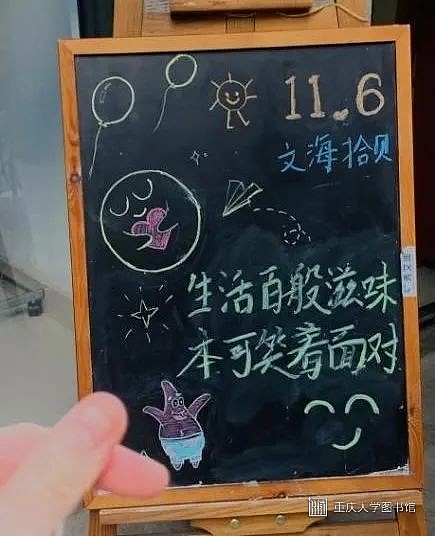 11.6
文海拾贝
生活百般滋味
本可笑着面对
重庆大学图书馆